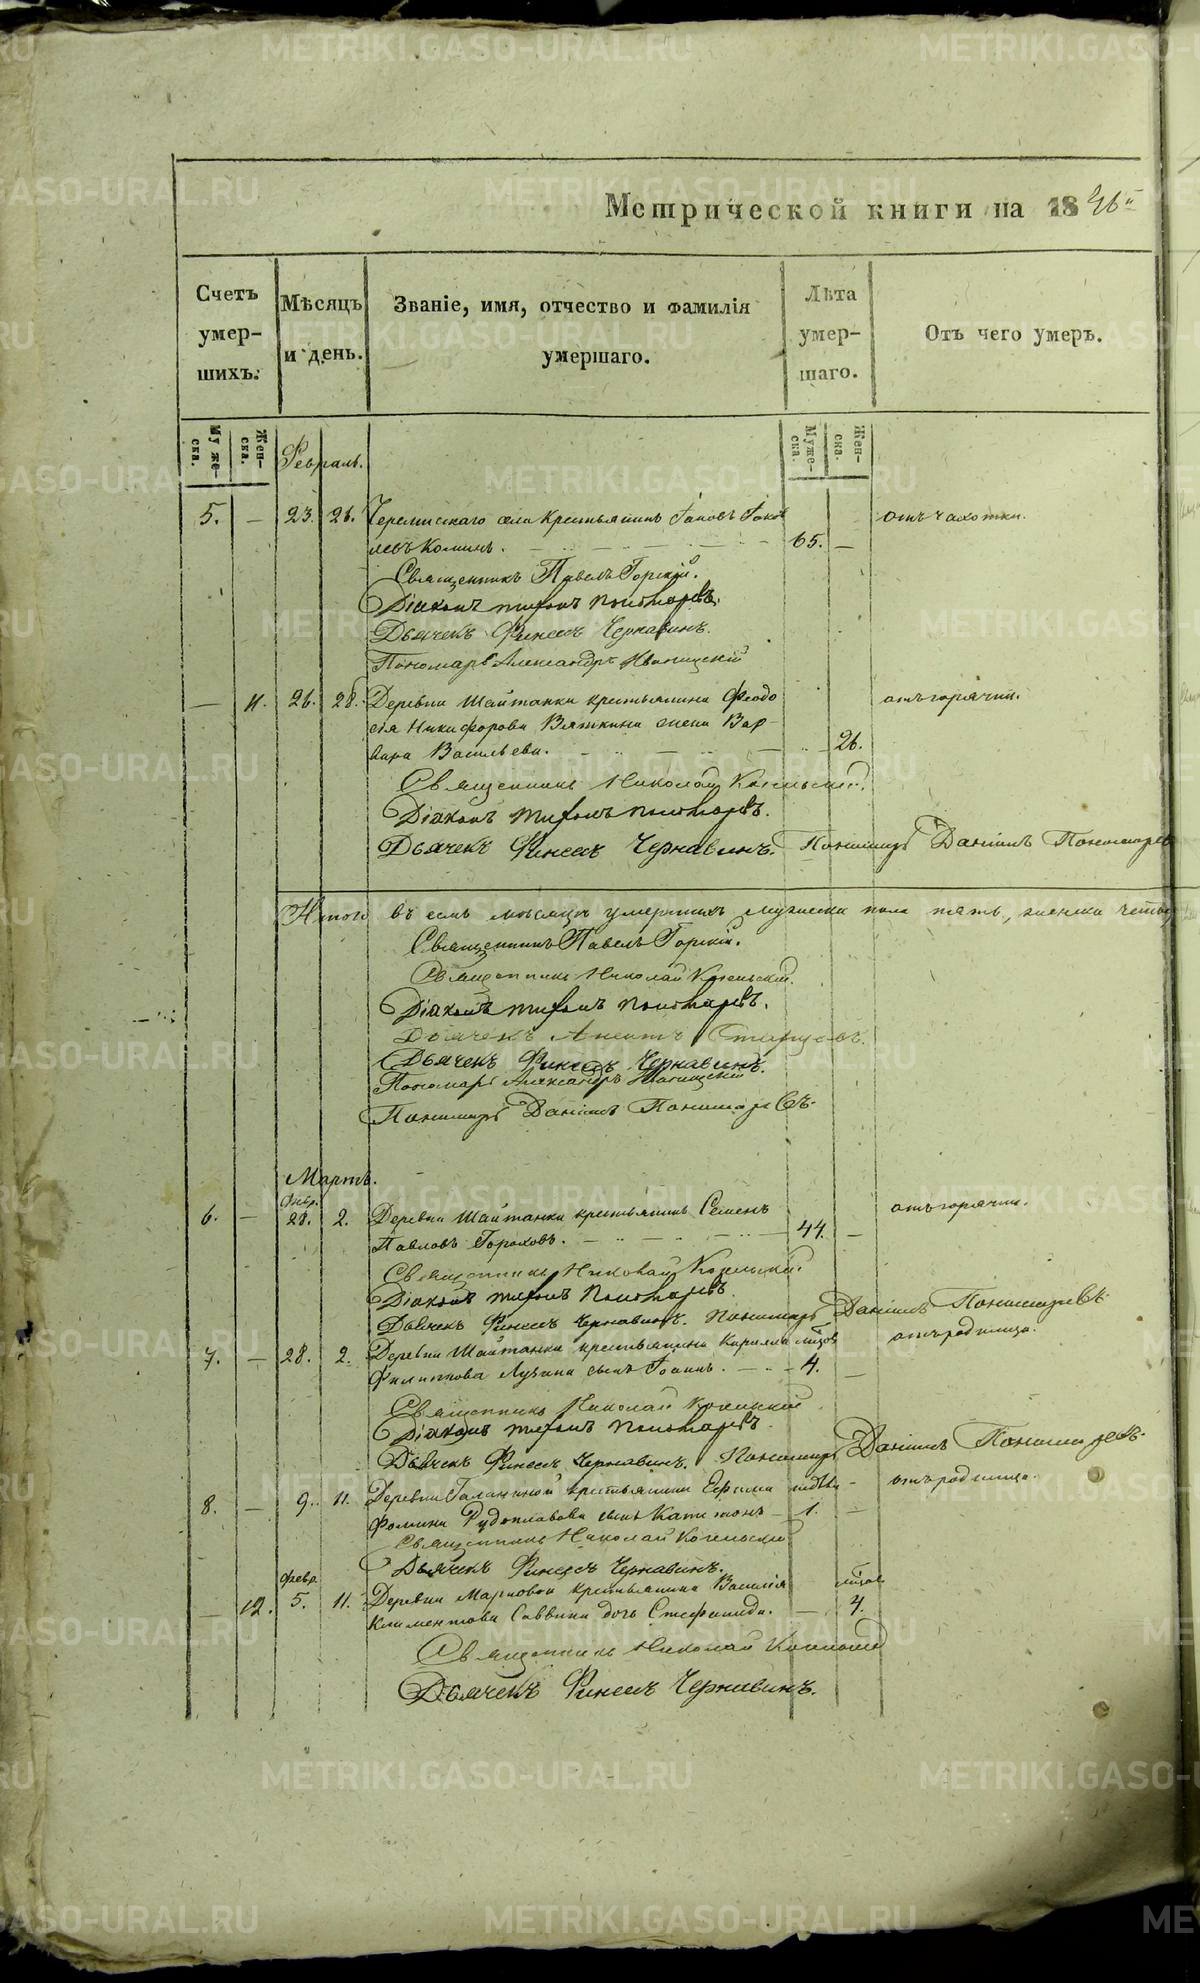 Метрической книги на 1846й
Счетъ умер-шихъ.
Мѣсяцъ и день.
Званіе, имя, отчество и фамилія умершаго.
Лѣта умер-шаго.
Отъ чего умеръ.
Муже-ска.
Жен-ска.
Муже-ска.
Жен-ска.
Февраль.
5. — 23. 26. Черемисскаго села крестьянинъ Іаковъ Іаков отъ чахотки.
левъ Коминъ. 65. —
Священникъ Павелъ Горскій.
Діаконъ Тифонъ Пономаревъ.
Дьячекъ Финеесъ Чернавинъ.
Пономарь Александръ Иваницкій
— 11. 26. 28. Деревни Шайтанки крестьянина Феодо отъ горячки.
сія Никифорова Вяткина жена Вар-
вара Васильева. 26.
Священникъ Николай Когельскій.
Діаконъ Тифонъ Пономаревъ.
Дьячекъ Финеесъ Чернавинъ. Пономарь Даніилъ Пономарев
Итого въ семъ мѣсяцѣ умершихъ мужеска пола пять, женска четы
Священникъ Павелъ Горскій.
Священникъ Николай Когельскій.
Діаконъ Тифонъ Пономаревъ.
Дьячекъ Старцевъ.
Дьячекъ Финеесъ Чернавинъ.
Пономарь Александръ Иваницкій
Пономарь Даніилъ Пономаревъ.
Мартъ.
Февр.
6. — 28. 2. Деревни Шайтанки крестьянинъ Семенъ отъ горячки.
Павловъ Гороховъ. 44. —
Священникъ Николай Когельскій.
Діаконъ Тифонъ Пономаревъ
Дьячекъ Финеесъ Чернавинъ. Пономарь Даніилъ Пономаревъ.
7. — 28. 2. Деревни Шайтанки крестьянина Кирилла мѣсяцов отъ родимца.
Филиппова Лузина сынъ Іоаннъ. 4. —
Священникъ Николай Когельскій
Діаконъ Тифонъ Пономаревъ
Дьячекъ Финеесъ Чернавинъ. Пономарь Даніилъ Пономаревъ.
8. — 9. 11. Деревни Галаниной крестьянина Ефима недѣли отъ родимца.
Фомина сынъ Капитонъ 1. —
Священникъ Николай Когельскій
Дьячекъ Финеесъ Чернавинъ.
Февр.
— 12. 5. 11. Деревни Марковой крестьянина Василія мѣсяцов
Климентова Саввина дочь Стефанида. 4.
Священникъ Николай Когельскій
Дьячекъ Финеесъ Чернавинъ.
METRIKI.GASO-URAL.RU